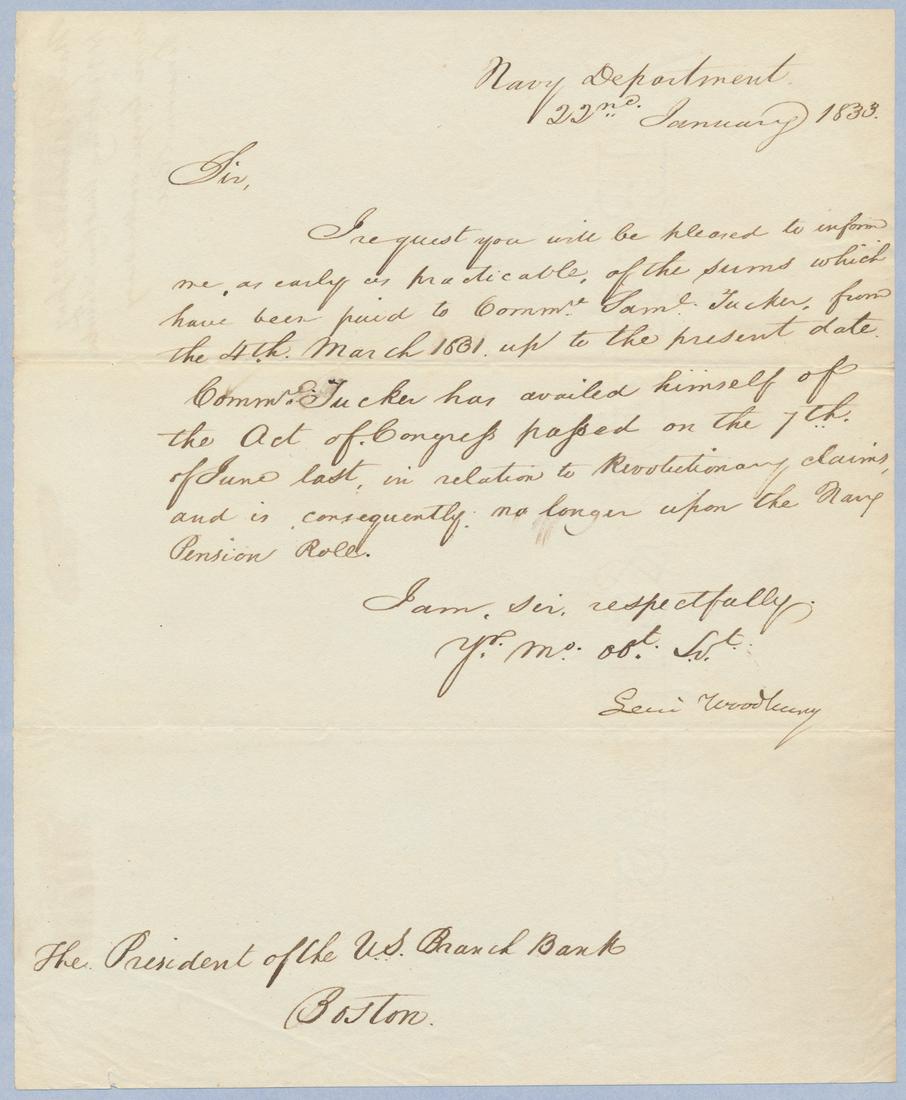 Navy Department
22nd. January 1833.
Sir,
I request you will be pleased to inform
me, as early as practicable, of the sums which
have been paid to Comm.re Saml. Tucker, from
the 4th. March 1831. up to the present date.
Comm.re Tucker has availed himself of
the Act of Congress passed on the 7th.
of June last, in relation to Revolutionary claims,
and is consequently no longer upon the Navy
Pension Roll.
I am, sir, respectfully,
Yr. Mo. obt. Svt.
Levi Woodbury
The President of the U.S. Branch Bank
Boston.